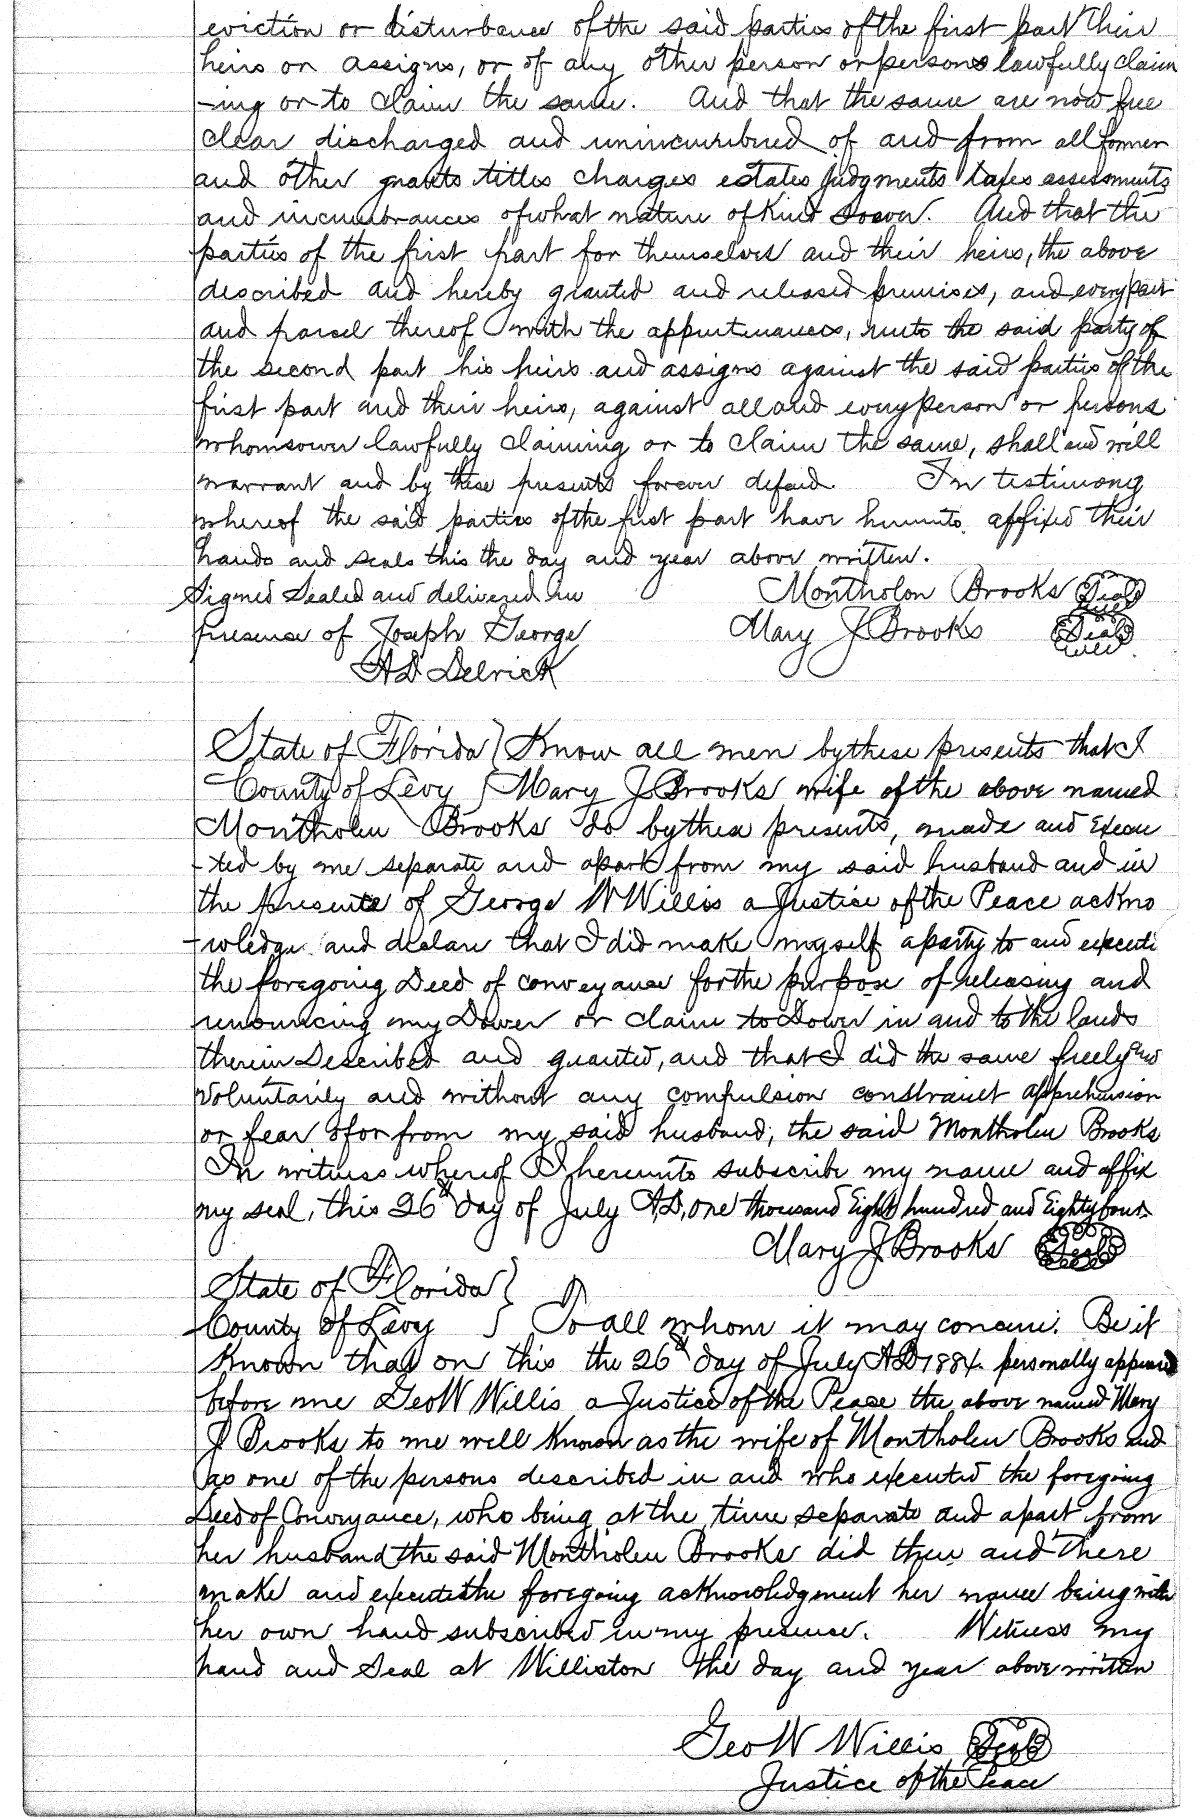 eviction or disturbance of the said parties of the first part their
heirs or assigns, or of any other person or persons lawfully claim
-ing or to claim the same. And that the same are now free
clear discharged and unincumbered of and from all former
and other grants titles charges estates judgments taxes assessments
and incumbrances of what nature of Kind soever. And that the
parties of the first part for themselves and their heirs, the above
described and hereby granted and released premises, and every part
and parcel thereof with the appurtenances, unto the said party of
the second part his heirs and assigns against the said parties of the
first part and their heirs, against all and every person or persons
whomsoever lawfully claiming or to claim the same, shall and will
warrant and by these presents forever defend. In testimony
whereof the said parties of the first part have hereunto affixed their
hands and seals this the day and year above written.
Signed Sealed and delivered in Montholon Brooks Seal
presense of Joseph George Mary J Brooks Seal
A D Delrick
State of Florida } Know all men by these presents that I
County of Levy } Mary J Brooks wife of the above named
Montholon Brooks do by these presents, made and Execu
-ted by me separate and apart from my said husband and in
the presence of George W Willis a Justice of the Peace ackno
-wledge and declare that I did make myself a party to and execute
the foregoing Deed of conveyance for the purpose of releasing and
renouncing my Dower or claim to Dower in and to the lands
therein Described and granted, and that I did the same freely and
voluntarily and without any compulsion constraint apprehension
or fear of or from my said husband, the said Montholon Brooks
In witness whereof I hereunto subscribe my name and affix
my seal, this 26th day of July A.D. one thousand Eight hundred and Eighty four.
Mary J Brooks Seal
State of Florida }
County of Levy } To all whom it may concern. Be it
Known that on this the 26th day of July AD 1884 personally appeared
before me Geo W Willis a Justice of the Peace the above named Mary
J Brooks to me well Known as the wife of Montholon Brooks and
as one of the persons described in and who executed the foregoing
Deed of Conveyance, who being at the time separate and apart from
her husband the said Montholon Brooks did then and there
make and execute the foregoing acknowledgment her name being with
her own hand subscribed in my presence. Witness my
hand and Seal at Williston the day and year above written
Geo W Willis Seal
Justice of the Peace